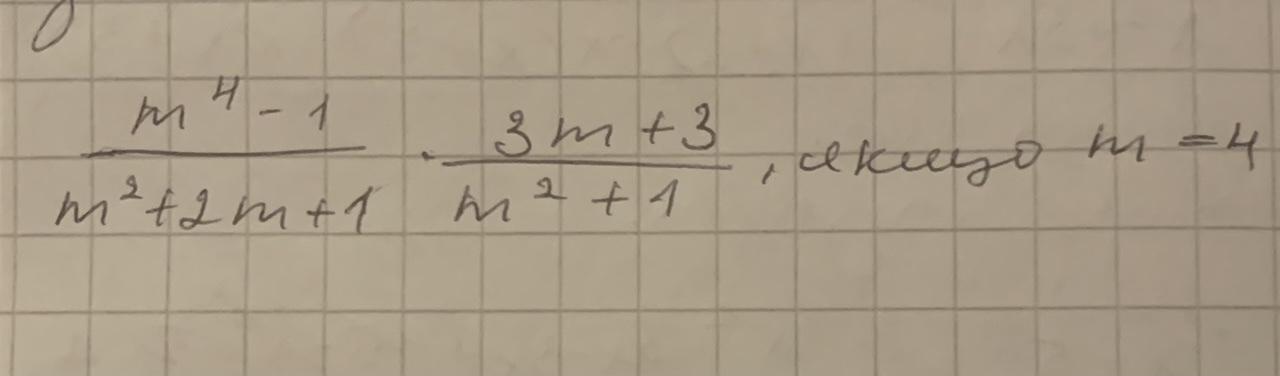 (m⁴ - 1)/(m² + 2m + 1) · (3m + 3)/(m² + 1), якщо m = 4